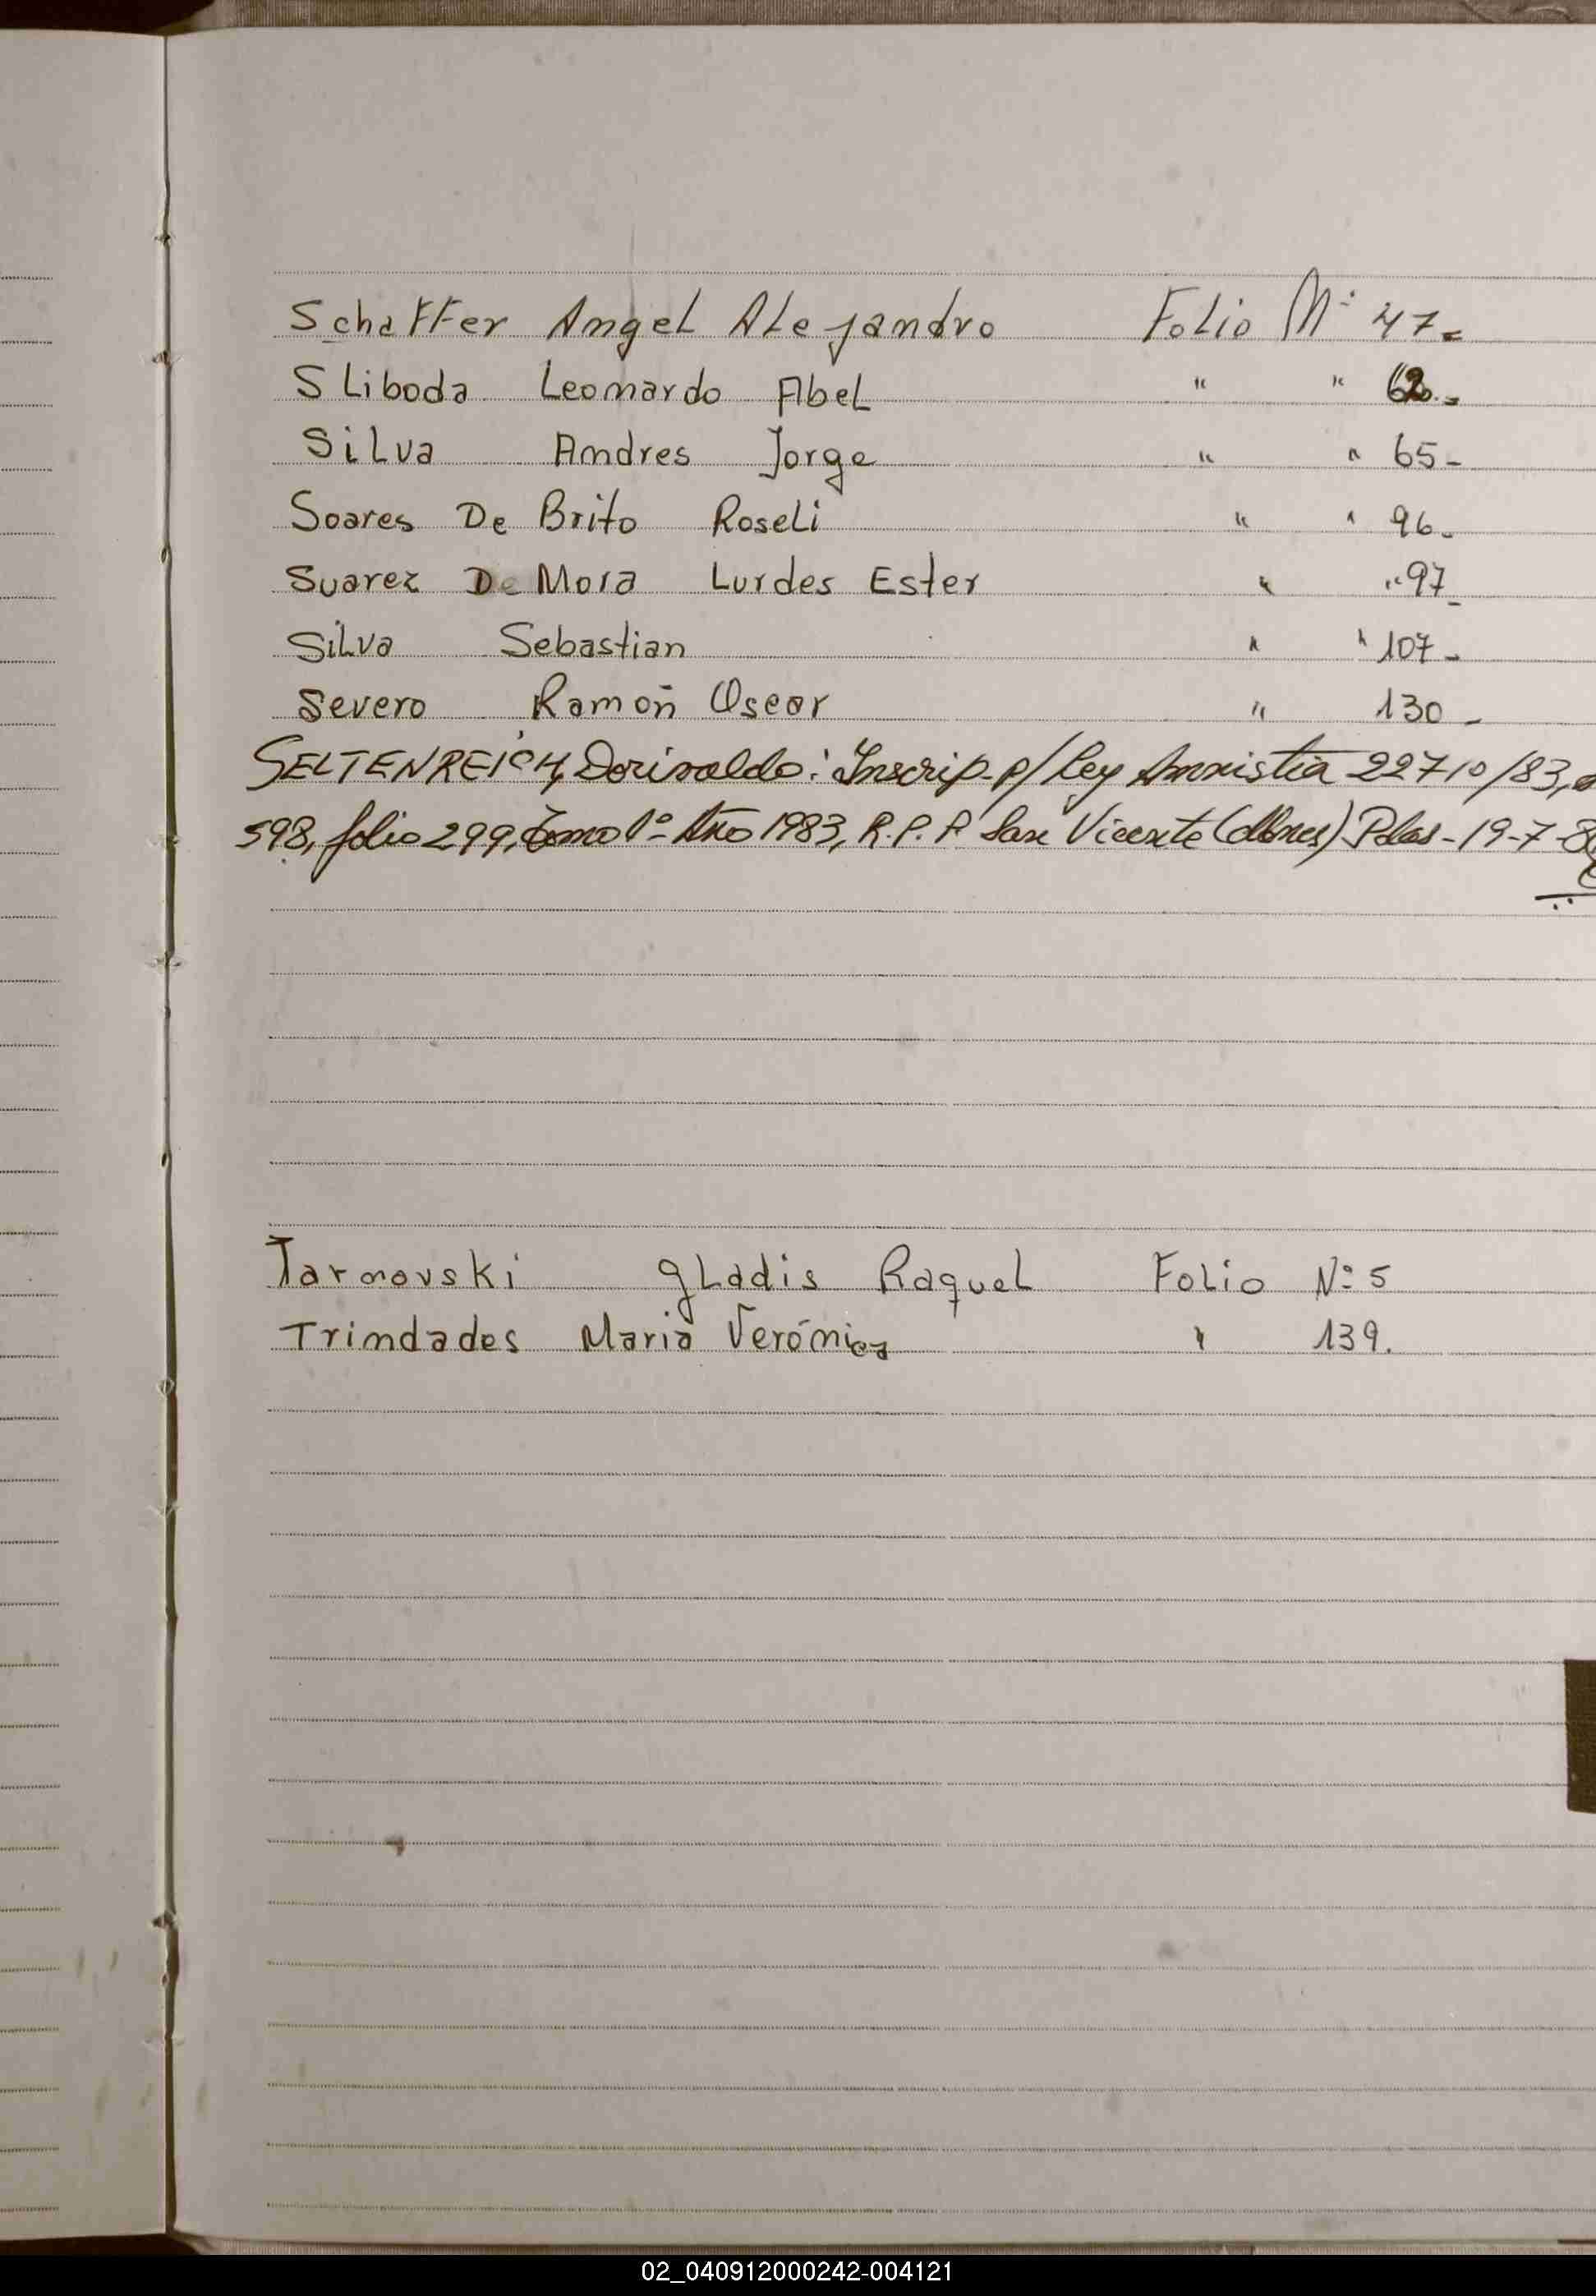 Schaffer Angel Alejandro Folio Nº 47=
Sliboda Leonardo Abel " " 62.=
Silva Andres Jorge " " 65-
Soares De Brito Roseli " " 96-
Suarez De Mora Lurdes Ester " " 97-
Silva Sebastian " " 107-
Severo Ramón Oscar " 130-
SELTENREICH, Dorivaldo: Inscrip. p/ Ley Amnistia 22710/83,
598, folio 299, tomo 1º Año 1983, R.P.P. San Vicente (Mnes) Pdas - 19-7-8
Tarnovski Gladis Raquel Folio Nº 5
Trindades Maria Verónica " 139.
02_040912000242-004121